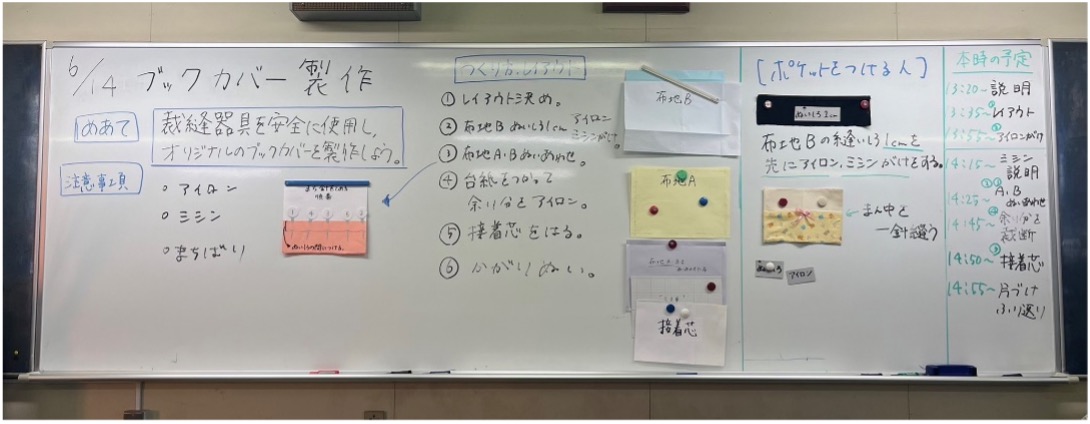 6/14 ブックカバー製作
めあて
裁縫器具を安全に使用し、
オリジナルのブックカバーを製作しよう。
注意事項
。アイロン
。ミシン
。まちばり
まち針をとめる
順番
つくり方、レイアウト
① レイアウト決め。
② 布地B ぬいしろ1cm アイロン
ミシンがけ。
③ 布地A・Bぬいあわせ。
④ 台紙をつかって
余り分をアイロン。
⑤ 接着芯をはる。
⑥ かがりぬい。
布地B
布地A
接着芯
[ポケットをつける人]
ぬいしろ2cm
布地Bの縫いしろ1cmを
先にアイロン、ミシンがけをする。
まん中を
一針縫う
アイロン
本時の予定
13:20~説明
13:35~①レイアウト
13:55~②アイロンがけ
14:15~ミシン
説明
14:25~A、B
ぬいあわせ
14:45~余り分を
裁断
14:50~接着芯
14:55~片づけ
ふり返り